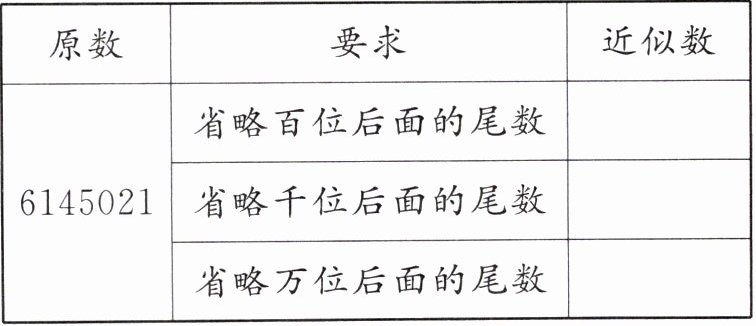 原数 要求 近似数
省略百位后面的尾数
6145021 省略千位后面的尾数
省略万位后面的尾数